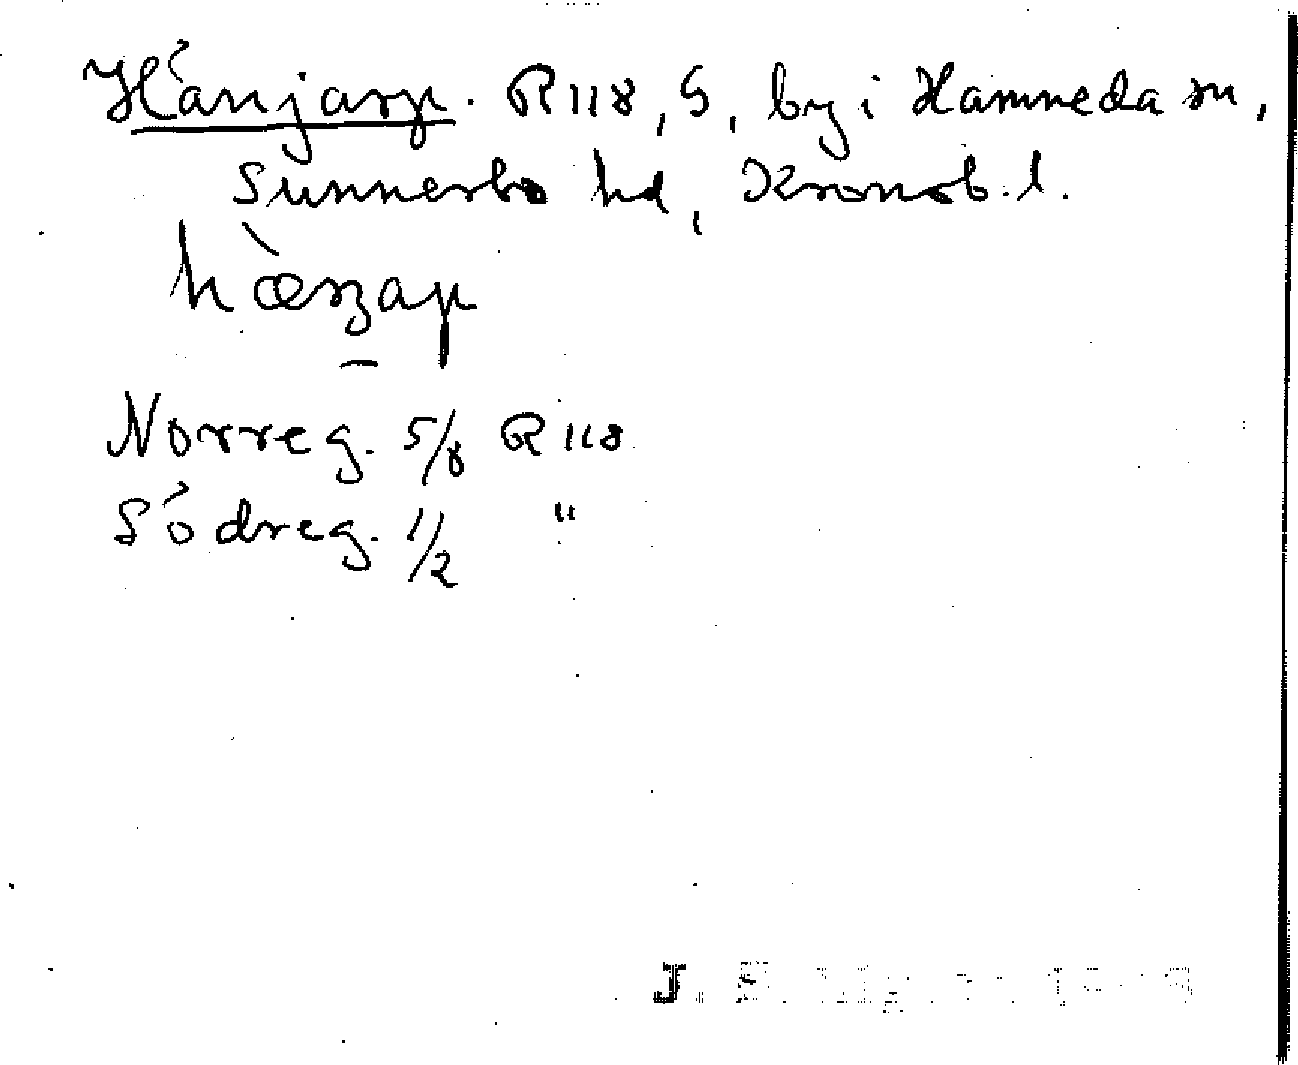 Hänjarp. R 118, S, by i Hamneda sn,
Sunnerbo hd, Kronob. l.
Norreg. 5/8 R 118
Södreg. 1/2 "
J.